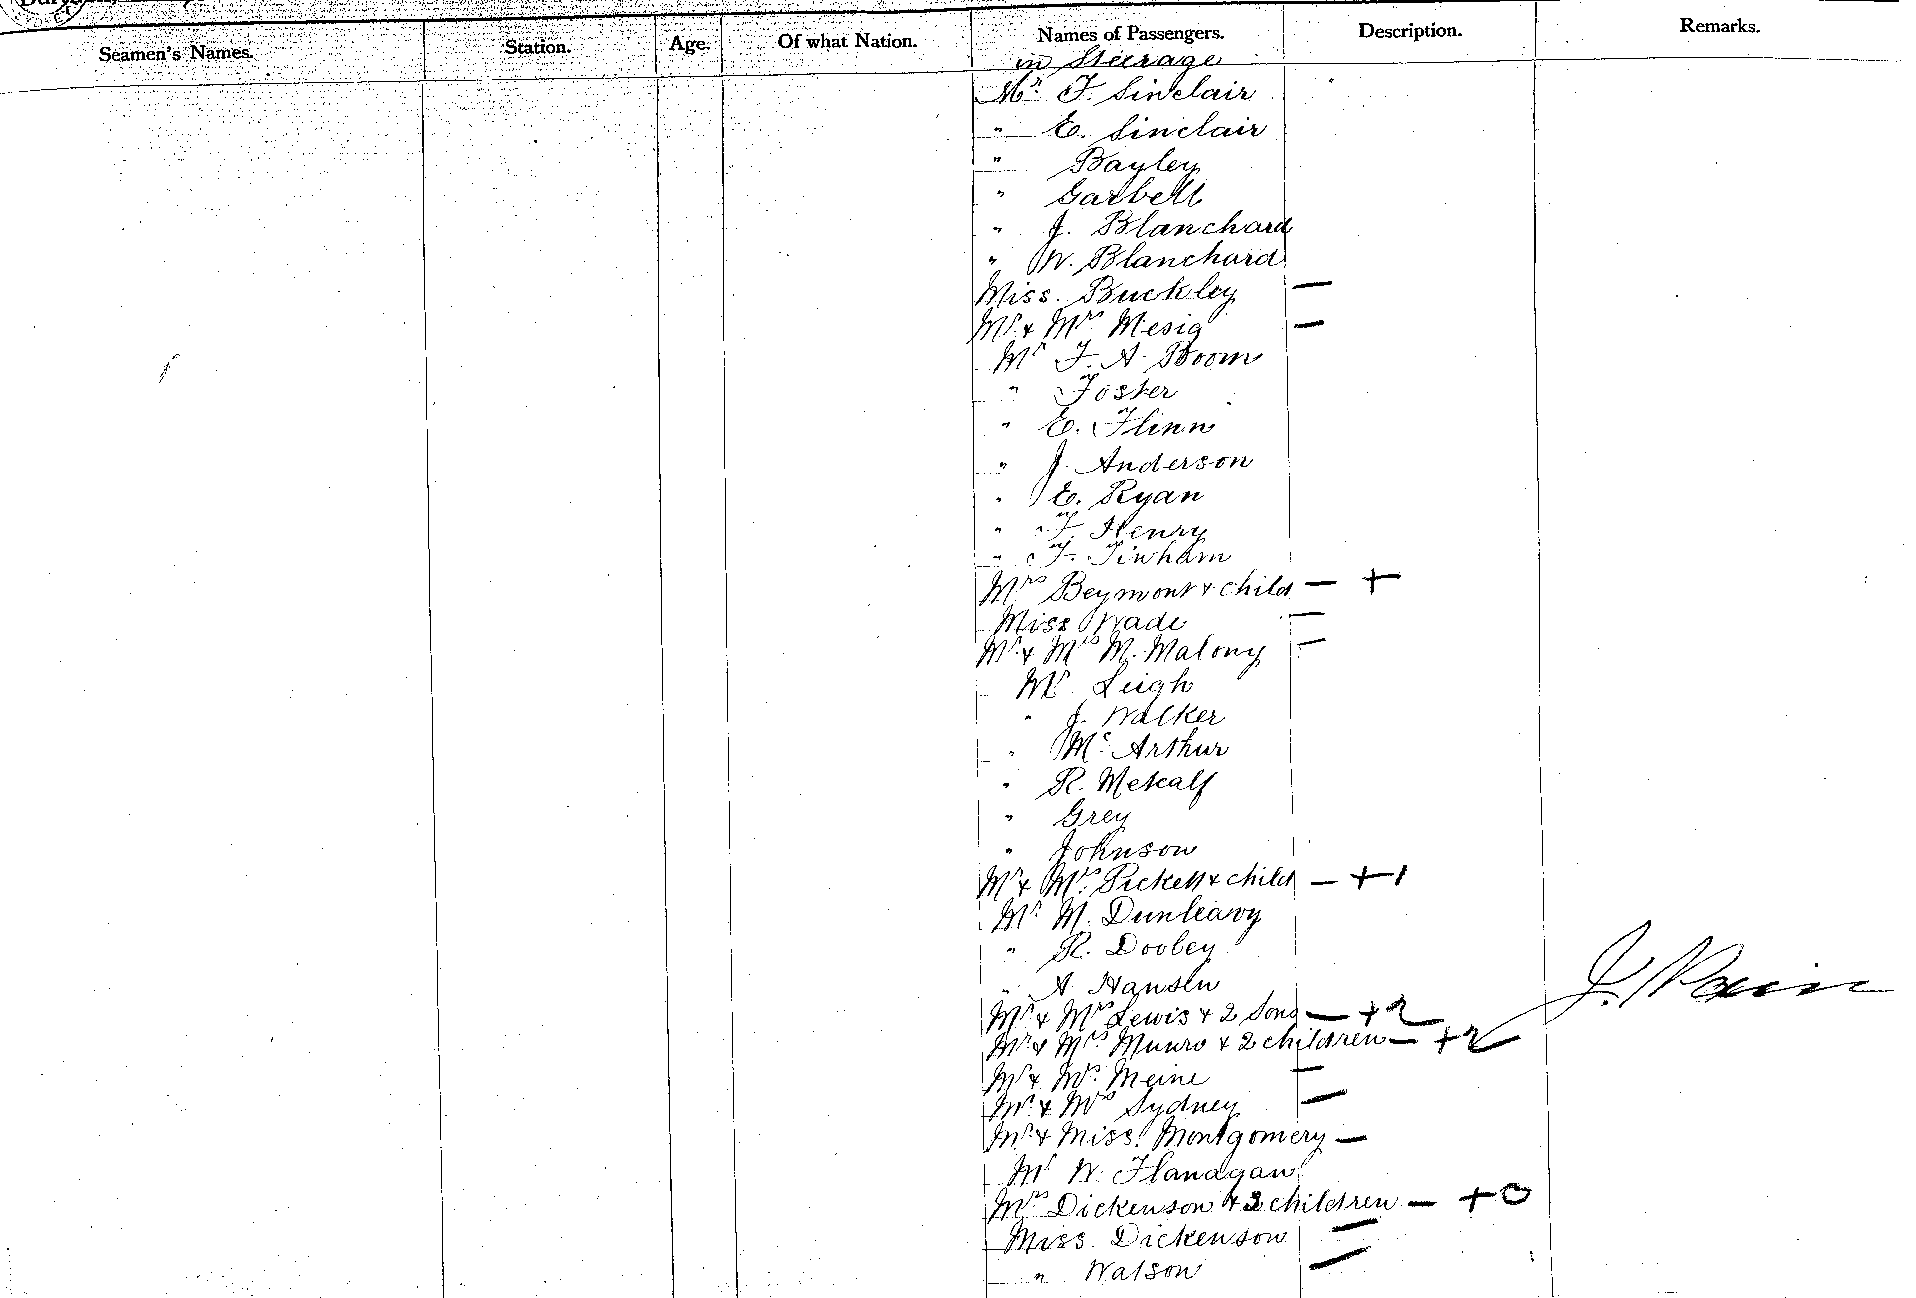 Seamen's Names. Station. Age. Of what Nation. Names of Passengers. Description. Remarks.
in Steerage
Mr. F. Sinclair
" E. Sinclair
" Bayley
" Garbell
" J. Blanchard
" W. Blanchard
Miss. Buckley —
Mr & Mrs Mesig —
Mr F. A. Boom
" Foster
" E. Flinn
" J. Anderson
" E. Ryan
" F. Henry
" F. Tinham
Mrs Beymont & child — +
Miss Wade —
Mr & Mrs M. Malony —
Mr Leigh
" J. Walker
" Mc Arthur
" R. Metcalf
" Grey
" Johnson
Mr & Mrs Pickett & child — + 1
Mr M. Dunleavy
" R. Dooley
" A Hansen
Mr & Mrs Lewis & 2 Sons — + 2
Mr & Mrs Munro & 2 children — + 2
Mr & Mrs Meine —
Mr & Mrs Sydney —
Mr & Miss. Montgomery —
Mr W. Flanagan
Mrs Dickenson & children — +
Miss. Dickenson —
" Watson —